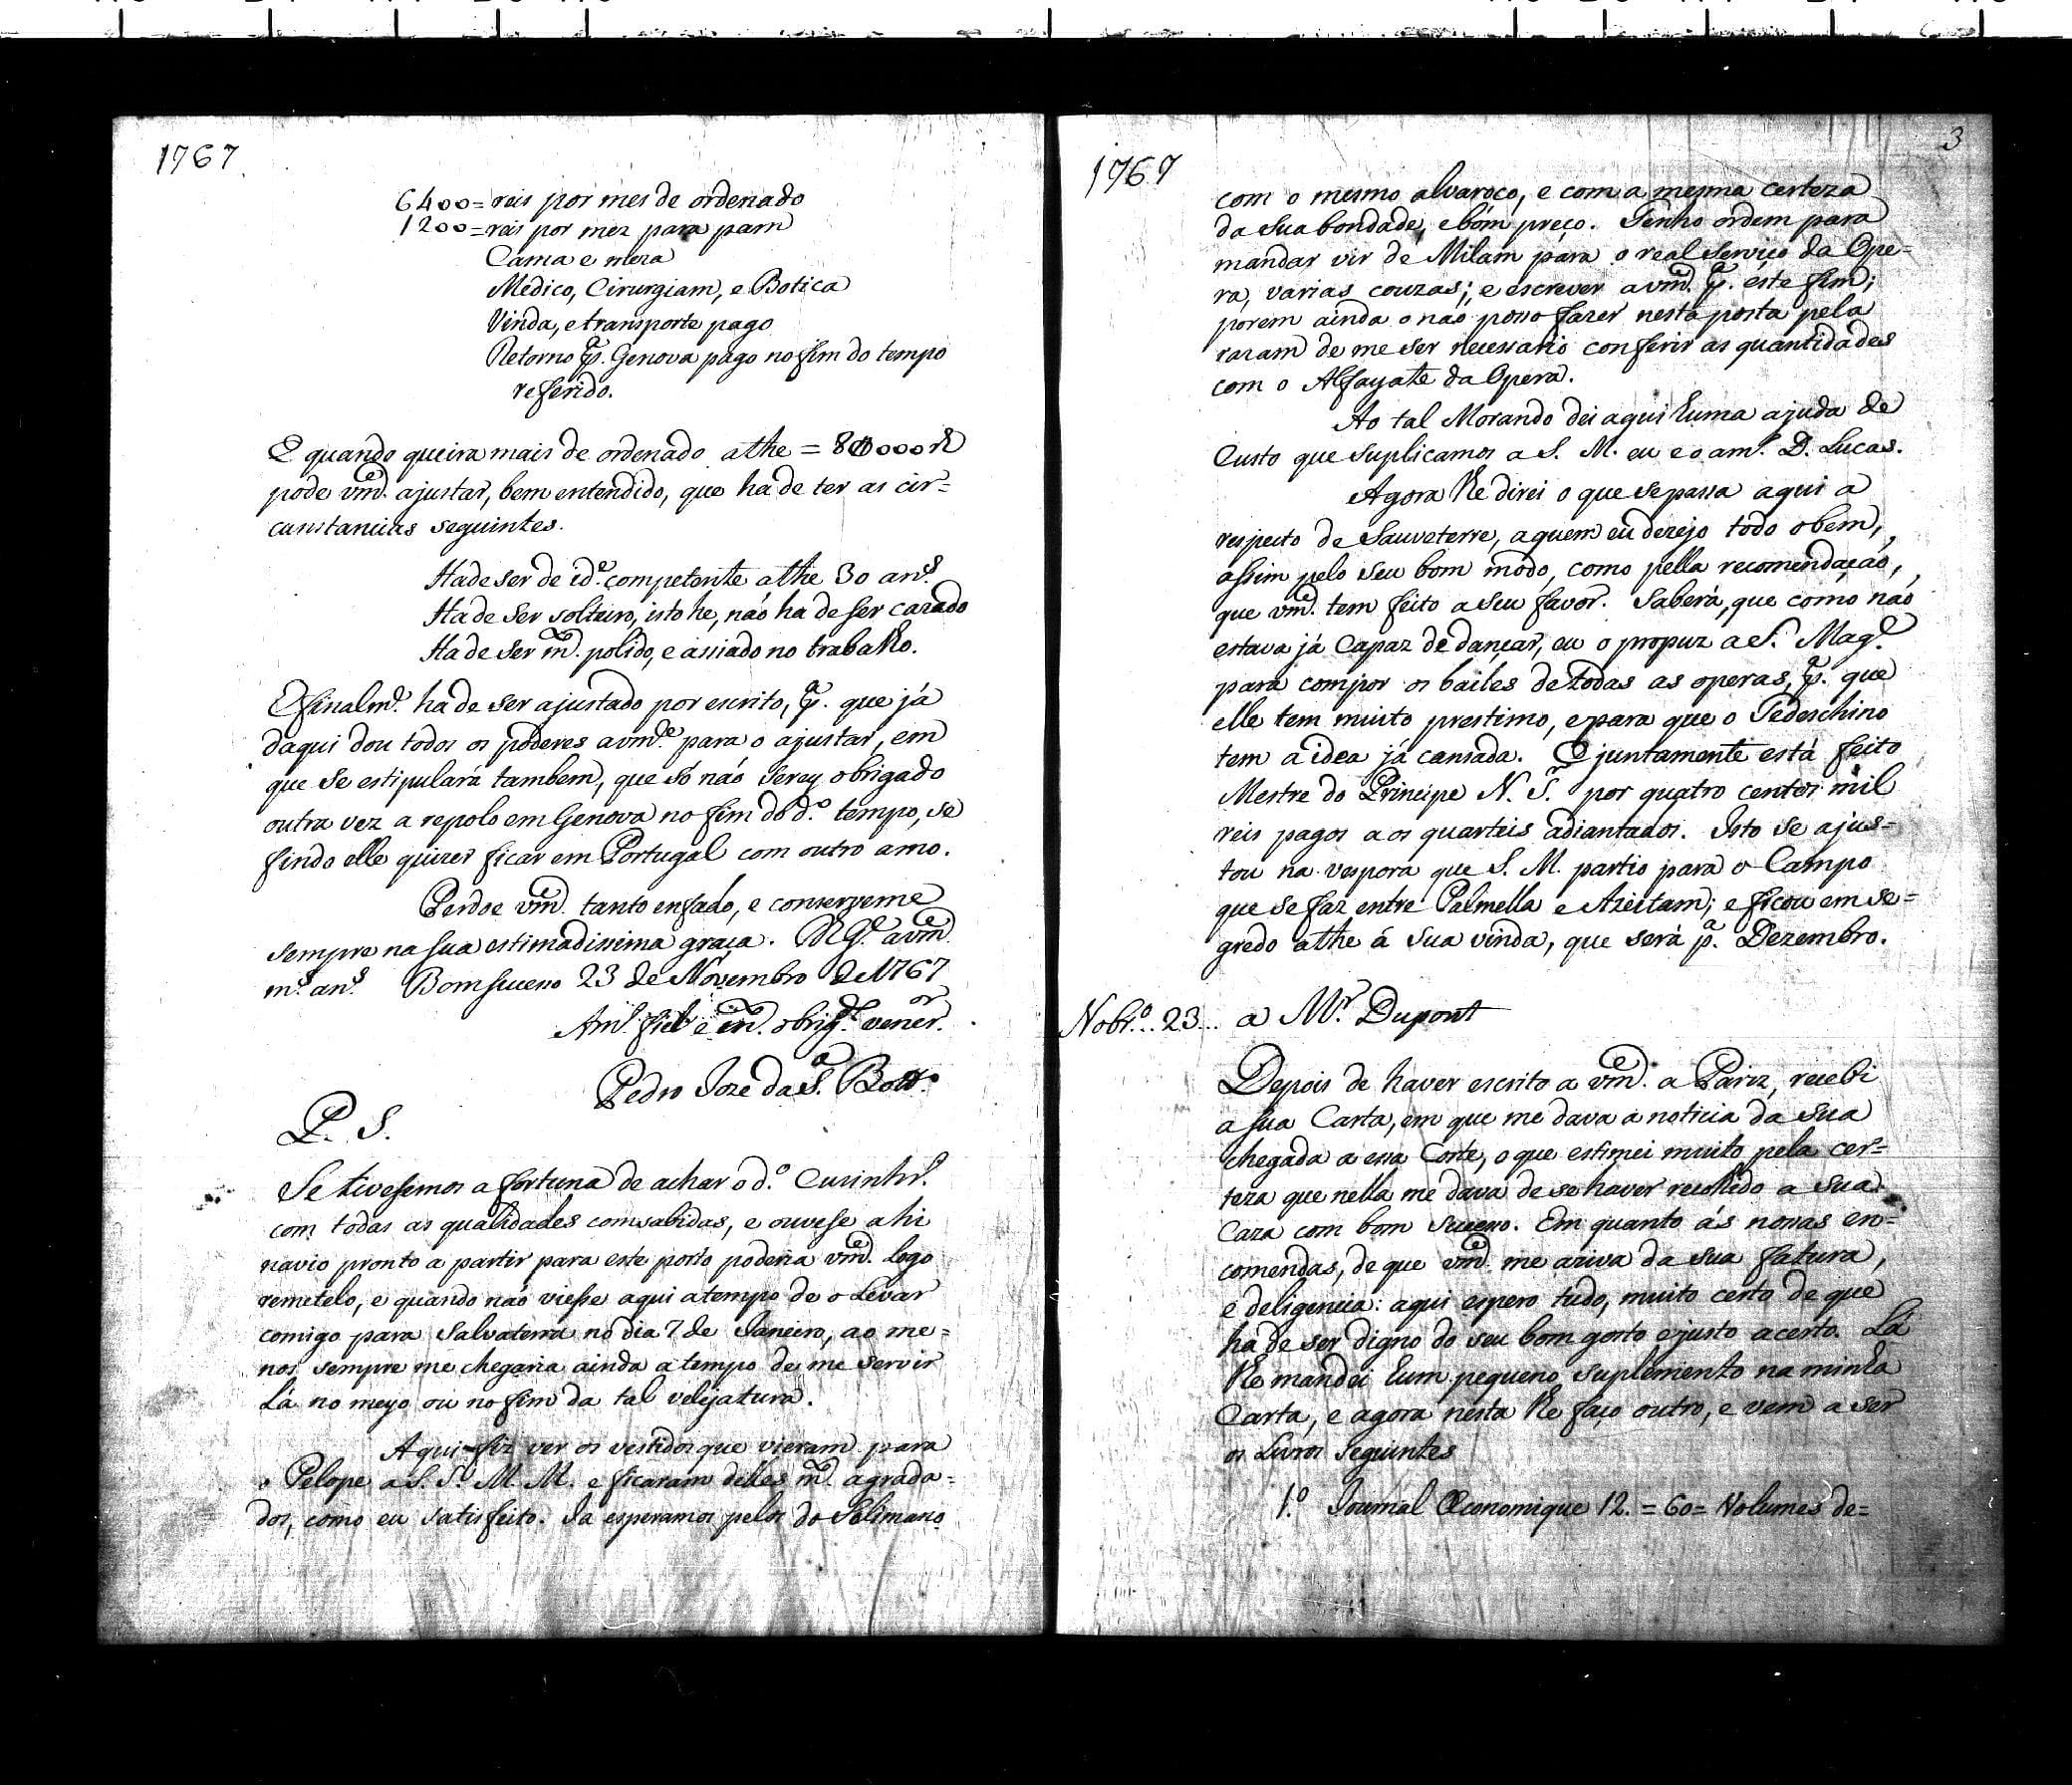 1767
6400 = reis por mes de ordenado
1200 = reis por mez para pam
Cama e meza
Medico, Cirurgiam, e Botica
Vinda, e transporte pago
Retorno pª. Genova pago no fim do tempo
referido.
E quando queira mais de ordenado athe = 8000 rs
pode vmᵉ. ajustar, bem entendido, que ha de ter as cir=
cunstancias seguintes.
Hade ser de idᵉ. competente athe 30 anˢ.
Ha de ser solteiro, isto he, náo ha de ser cazado
Ha de ser mᵗᵒ. polido, e assiado no trabalho.
E finalmᵉ. ha de ser ajustado por escrito, pª. que já
daqui dou todos os poderes a vmᵉ. para o ajustar, em
que se estipulará tambem, que só náo serey obrigado
outra vez a repolo em Genova no fim do dº. tempo, se
findo elle quizer ficar em Portugal com outro amo.
Perdoe vmᵉ. tanto enfado, e conserveme
sempre na sua estimadissima graça. N Gᵉ. a vmᵉ
mˢ. anˢ. Bomsuceso 23 de Novembro de 1767
Amº. fiel e mᵗᵒ. obrigº. venerᵒʳ.
Pedro Joze da Sª. Botº.
P. S.
Se tivesemos a fortuna de achar o dº. Cusinhrº.
com todas as qualidades comsabidas, e ouvese ahi
navio pronto a partir para este porto poderia vmᵉ. logo
remetelo, e quando náo viesse aqui a tempo de o Levar
comigo para Salvaterra no dia 7 de Janeiro, ao me=
nos sempre me chegaria ainda a tempo de me servir
Lá no meyo ou no fim da tal velejatura.
Aqui fiz ver os vestidos que vieram para
o Pelope a S. Sˢ. M. M. e ficaram delles mᵗᵒ. agrada=
dos, como eu satisfeito. Ja esperamos pelos do Solimano
3
1767
com o mesmo alvaroço, e com a mesma certeza
da sua bondade, e bom preço. Tenho ordem para
mandar vir de Milám para o real serviço da Ope=
ra, varias couzas; e escrever a vmᵉ. pª. este fim;
porem ainda o náo posso fazer nesta posta pela
razam de me ser necessario conferir as quantidades
com o Alfayate da Opera.
Ao tal Morando dei aqui huma ajuda de
Custo que suplicamos a S. M. eu e o amº. D. Lucas.
Agora lhe direi o que se passa aqui a
respeito de Sauveterre, a quem eu dezejo todo o bem,
assim pelo seu bom modo, como pella recomendaçáo,
que vmᵉ. tem feito a seu favor. Saberá, que como náo
estava já capaz de dançar, eu o propuz a S. Magᵉ.
para compor os bailes de todas as operas, pª. que
elle tem muito prestimo, e para que o Tedeschino
tem a idea já cansada. E juntamente está feito
Mestre do Principe N. S. por quatro centos mil
reis pagos aos quarteis adiantados. Isto se ajus=
tou na vespora que S. M. partio para o Campo
que se faz entre Palmella e Azeitam; e ficou em se=
gredo athe á sua vinda, que será pª. Dezembro.
Nobrº. 23... a Mʳ. Dupont
Depois de haver escrito a vmᵉ. a Pariz, recebi
a sua Carta, em que me dava a noticia da sua
chegada a essa Corte, o que estimei muito pela cer=
teza que nella me dava de se haver recolhido a sua
Caza com bom suceso. Em quanto ás novas en=
comendas, de que vmᵉ. me aziva da sua fatura,
e deligencia: aqui espero tudo, muito certo de que
ha de ser digno do seu bom gosto e justo acerto. Lá
lhe mandei hum pequeno suplemento na minha
Carta, e agora nesta lhe faço outro, e vem a ser
os Livros seguintes
1.º Journal Œconomique 12. = 60 = Volumes de=